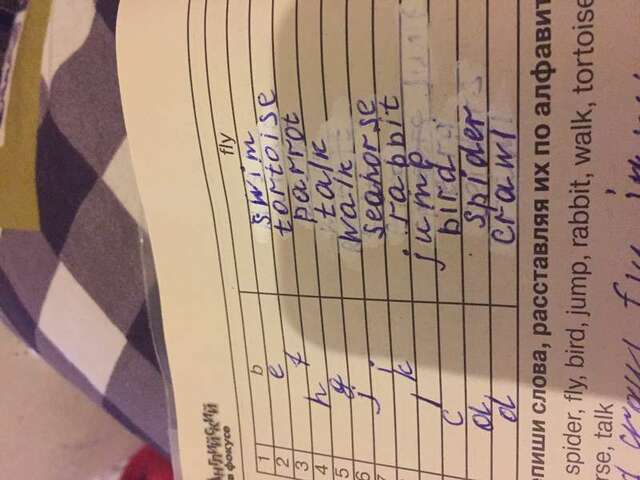 Английский
в фокусе
1 b fly
2 e swim
3 f tortoise
4 h parrot
5 g talk
6 j walk
7 i seahorse
k rabbit
l jump
c bird
a spider
d crawl
епиши слова, расставляя их по алфавит
spider, fly, bird, jump, rabbit, walk, tortoise
rse, talk
d crawl fly